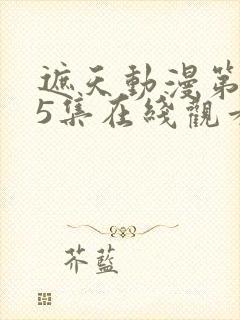 遮天動漫第
5集在綫觀
芥藍